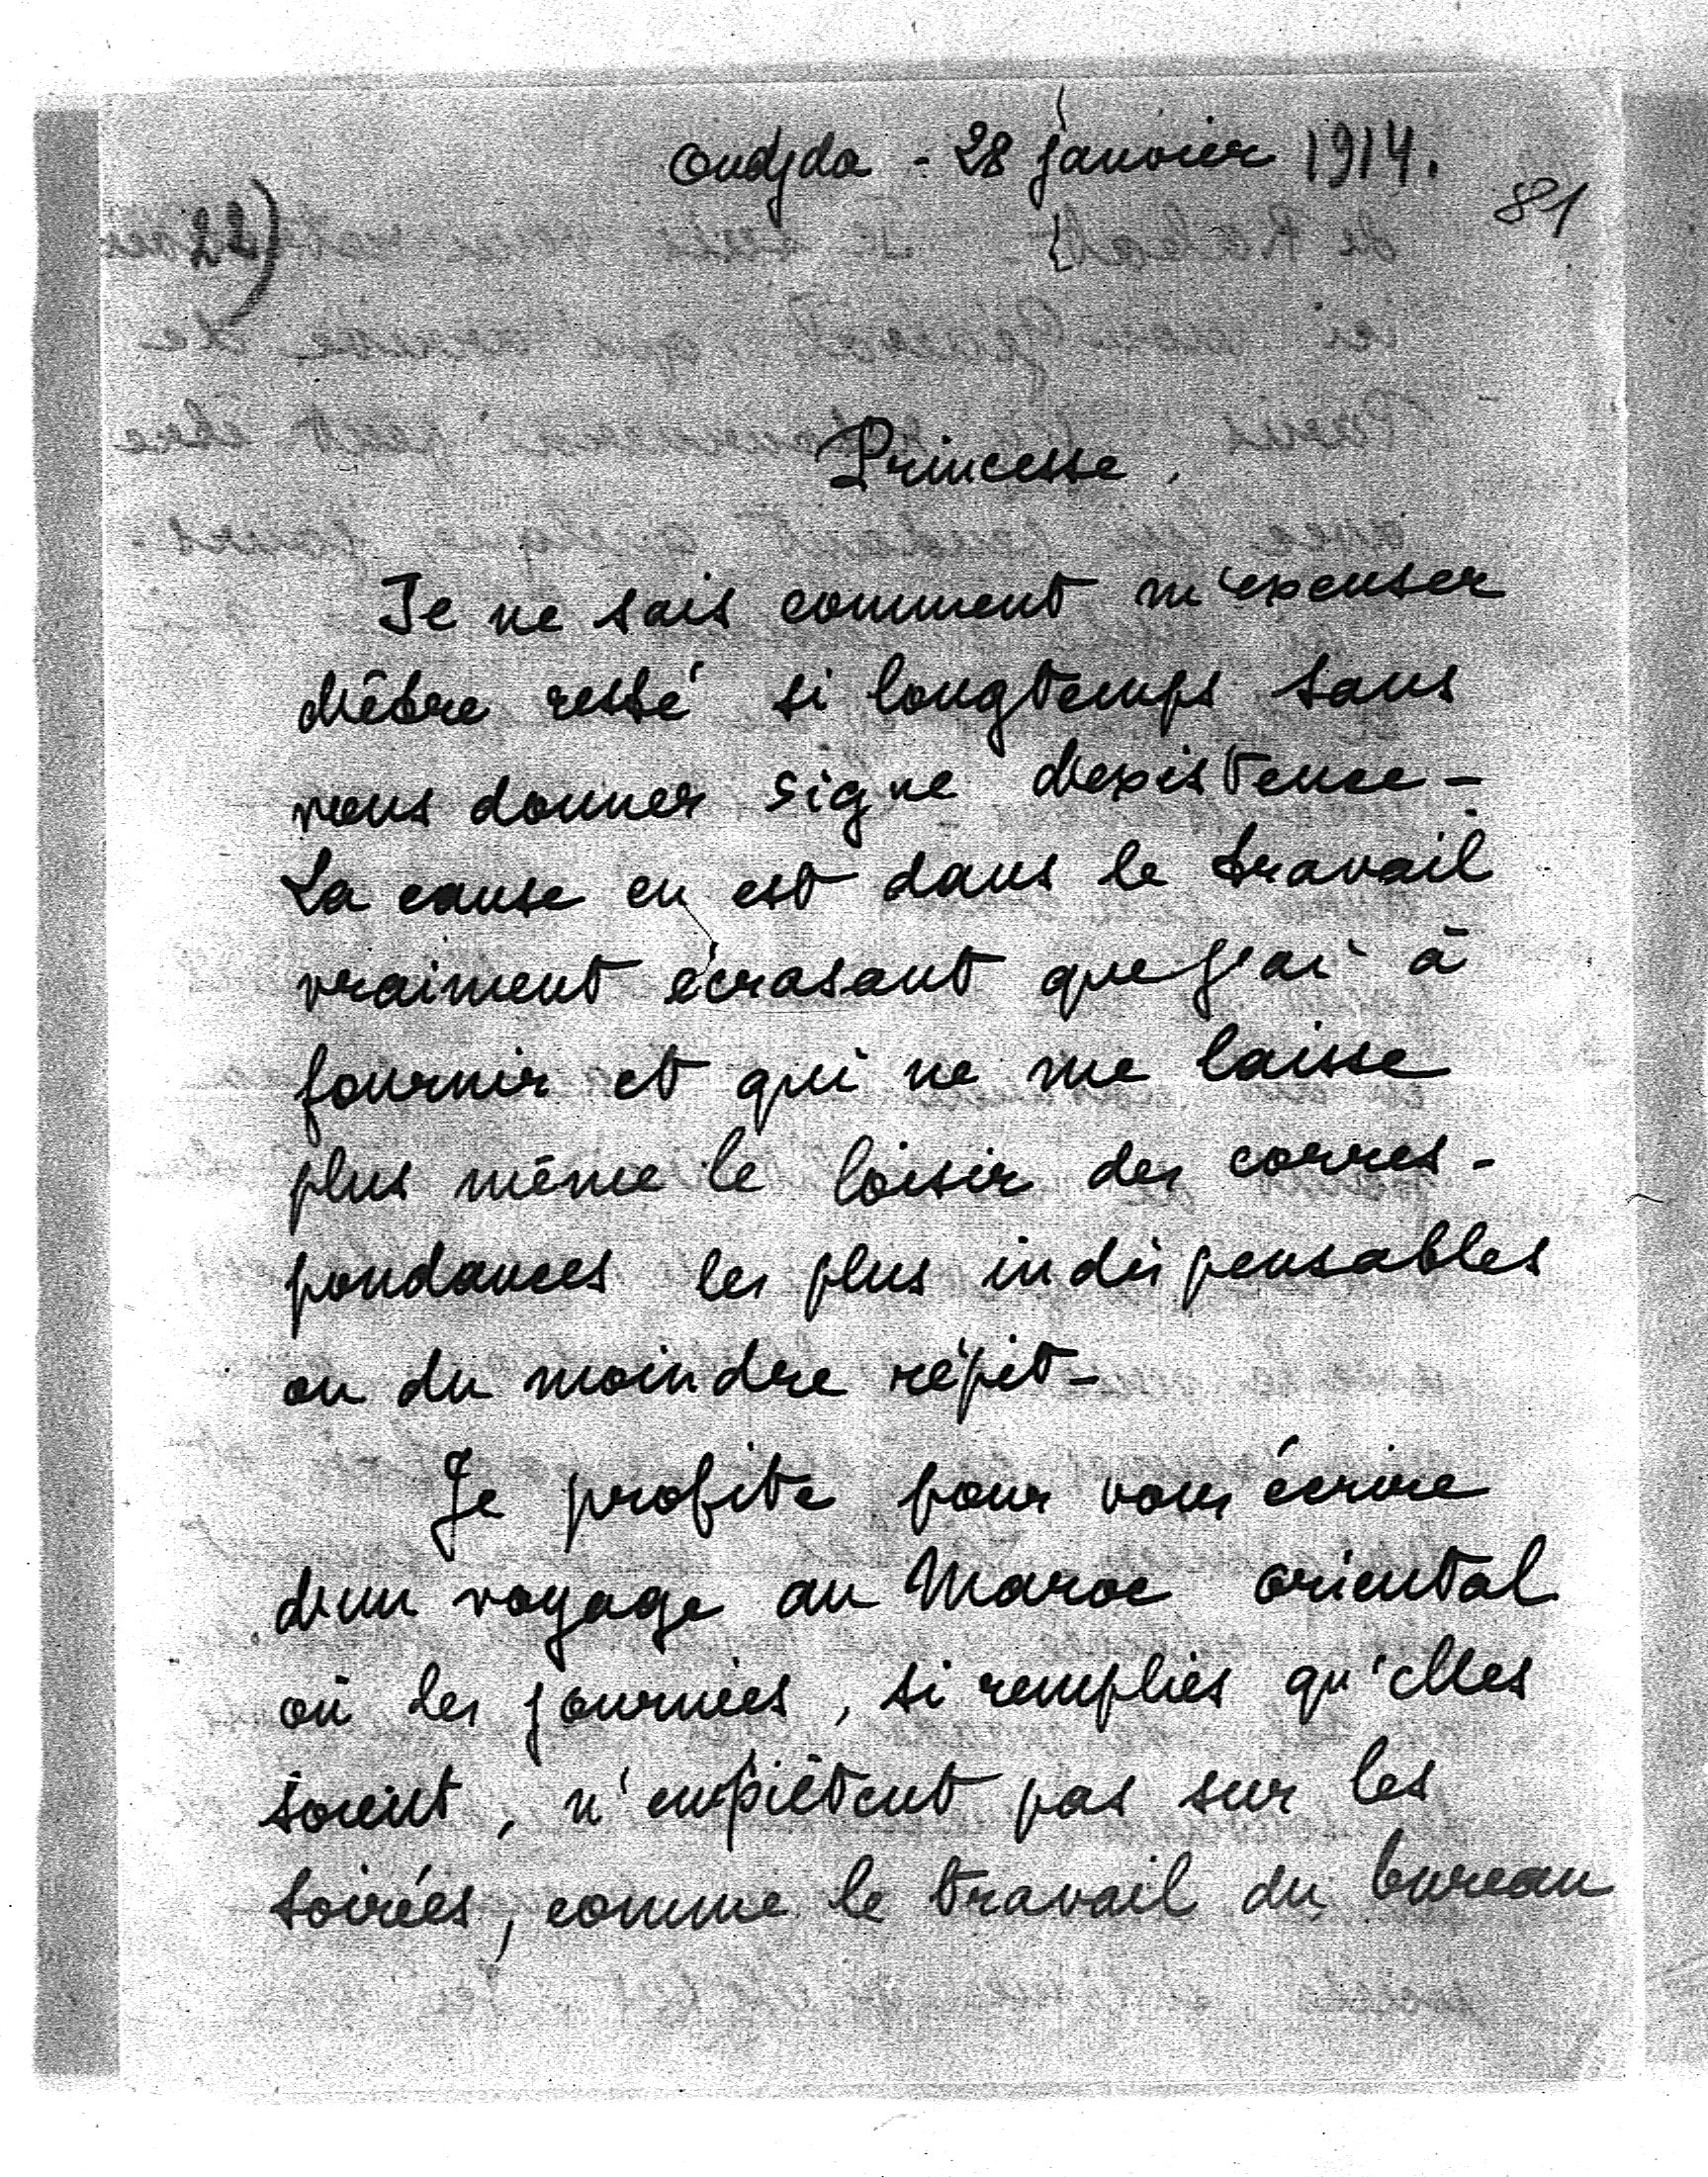 Oudjda - 28 janvier 1914.
81
22)
Princesse,
Je ne sais comment m'excuser
d'être resté si longtemps sans
vous donner signe d'existence -
La cause en est dans le travail
vraiment écrasant que j'ai à
fournir et qui ne me laisse
plus même le loisir des corres-
pondances les plus indispensables
ou du moindre répit -
Je profite pour vous écrire
d'un voyage au Maroc oriental
où les journées, si remplies qu'elles
soient, n'empiètent pas sur les
soirées, comme le travail du bureau